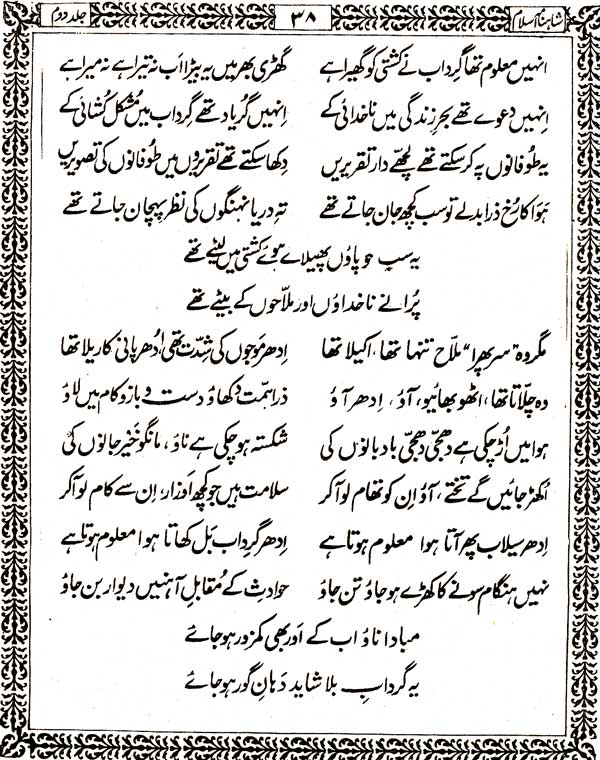 شاہنامہ اسلام ۳۸ جلد دوم
انہیں معلوم تھا گرداب نے کشتی کو گھیرا ہے گھڑی بھر میں یہ بیڑا اب نہ تیرا ہے نہ میرا ہے
اِنہیں دعوے تھے بحرِ زندگی میں ناخدائی کے اِنہیں گُر یاد تھے گرداب میں مُشکل کُشائی کے
یہ طُوفانوں پہ کر سکتے تھے لچھے دار تقریریں دِکھا سکتے تھے تقریروں میں طُوفانوں کی تصویریں
ہَوا کا رُخ ذرا بدلے تو سب کچھ جان جاتے تھے تہِ دریا نہنگوں کی نظر پہچان جاتے تھے
یہ سب جو پاؤں پھیلائے ہوئے کشتی میں لیٹے تھے
پُرانے ناخداؤں اور ملاّحوں کے بیٹے تھے
مگر وہ "سر پھرا" ملّاح تنہا تھا، اکیلا تھا اِدھر مَوجوں کی شِدّت تھی اُدھر پانی کا ریلا تھا
وہ چِلّاتا تھا، اٹھو بھائیو، آؤ، اِدھر آؤ ذرا ہمّت دکھاؤ دست و بازو کام میں لاؤ
ہوا میں اُڑ چکی ہے دھجّی دھجّی بادبانوں کی شکستہ ہو چکی ہے ناؤ، مانگو خَیر جانوں کی
اُکھڑ جائیں گے تختے، آؤ اِن کو تھام لو آ کر سلامت ہیں جو کچھ اَوزار، اِن سے کام لو آ کر
اِدھر سیلاب پھر آتا ہوا معلوم ہوتا ہے اِدھر گرداب بَل کھاتا ہوا معلوم ہوتا ہے
نہیں ہنگام سونے کا کھڑے ہو جاؤ تن جاؤ حوادِث کے مُقابل آہنیں دیوار بن جاؤ
مبادا ناؤ اب کے اَور بھی کمزور ہو جائے
یہ گردابِ بلا شاید دَہانِ گور ہو جائے